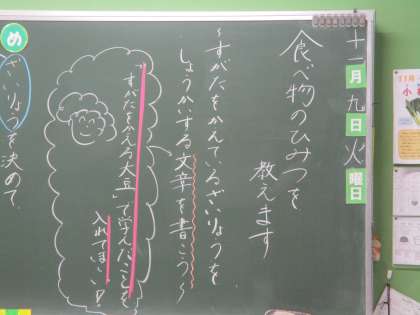 十一月九日火曜日
食べ物のひみつを
教えます
〜すがたをかえているざいりょうを
しょうかいする文章を書こう〜
「すがたをかえる大豆」で学んだことを
入れてほしい!!
め
ざいりょうを決めて、